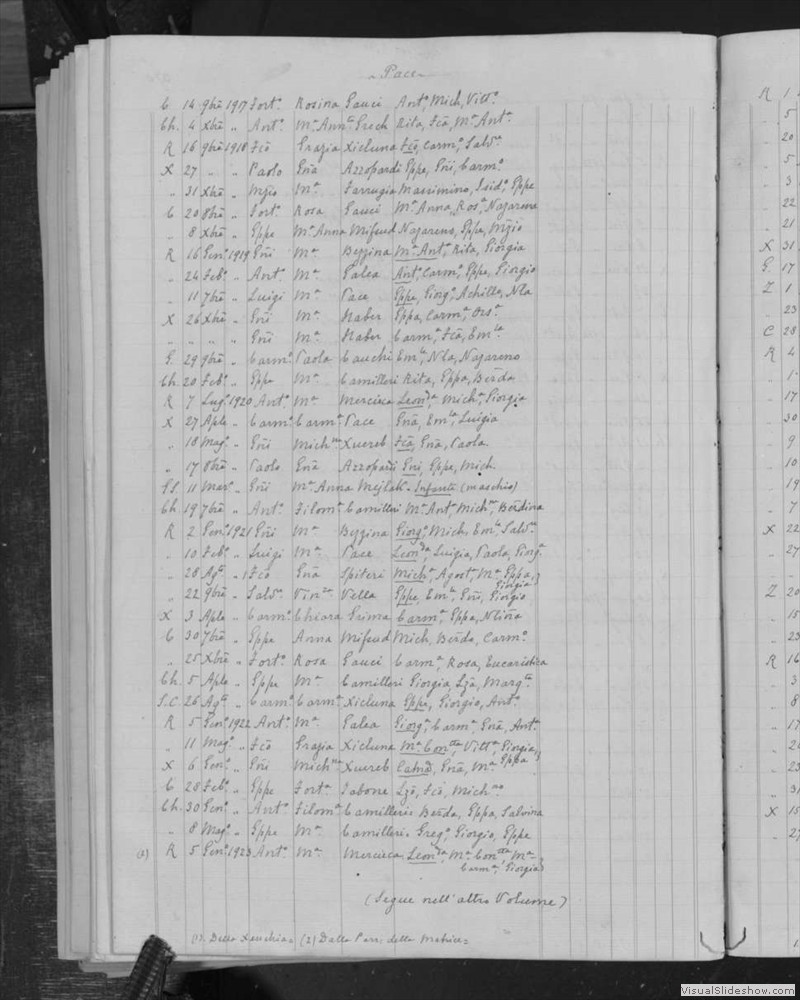 Pace
C 14 9bre 1917 Fort.o Rosina Gauci Ant.o, Mich, Vitt.o
Ch. 4 Xbre " Ant.o M.a Ann.a Grech Rita, Fca, M.a Ant.a
R 16 9bre 1918 Fco Grazia Xicluna Fco, Carm.o, Salv.e
X 27 " " Paolo Gna Azzopardi Gppe, Gni, Carm.o
" 31 Xbre " M.a Farrugia Massimino, Isid.o, Gppe
C 20 8bre " Fort.o Rosa Gauci M.a Anna, Ros.a, Nazarena
" 8 Xbre " Gppe M.a Anna Mifsud Nazareno, Gppe,
R 16 Gen.o 1919 Gni M.a Bezzina M.a Ant.a, Rita, Giorgia
" 24 Feb.o " Ant.o M.a Galea Ant.o, Carm.o, Gppe, Giorgio
" 11 7bre " Luigi M.a Pace Gppe, Giorg.o, Achille, Nla
X 26 Xbre " Gni M.a Haber Gppa, Carm.a, Ors.a
" " " " Gni M.a Haber Carm.a, Fca, Em.la
G 29 9bre " Carm.o Paola Cauchi Em.le, Nla, Nazareno
Ch. 20 Feb.o " Gppe M.a Camilleri Rita, Gppa, Berda
R 7 Lug.o 1920 Ant.o M.a Mercieca Leon.da, Mich.a, Giorgia
X 27 Aple " Carm.o Carm.a Pace Gna, Em.la, Luigia
" 18 Mag.o " Gni Mich.na Xuereb Fca, Gna, Paola
" 17 8bre " Paolo Gna Azzopardi Gni, Gppe, Mich.
11 Mar.o " Gni M.a Anna Mejlak - Infante (maschio)
Ch 19 7bre " Ant.o Filom.a Camilleri M.a Ant.a, Mich.na, Berdina
R 2 Gen.o 1921 Gni M.a Bezzina Giorg.o, Mich. Em.le, Salv.e
" 10 Feb.o " Luigi M.a Pace Leon.da, Luigia, Paola, Giorg.a
" 28 Ag.to " Fco Gna Spiteri Mich.a, Agost.a, M.a, Gppa, Giorgia
" 22 9bre " Salv.e Vin.za Vella Gppe, Em.le, Gni, Giorgio
X 3 Aple " Carm.o Chiara Grima Carm.a, Gppa,
C 30 7bre " Gppe Anna Mifsud Mich, Berdo, Carm.o
" 25 Xbre " Fort.o Rosa Gauci Carm.a, Rosa, Eucaristica
Ch. 5 Aple " Gppe M.a Camilleri Giorgia, Lza, Marg.ta
S.C. 26 Ag.to " Carm.o Carm.a Xicluna Gppe, Giorgio, Ant.o
R 5 Gen.o 1922 Ant.o M.a Galea Giorg.a, Carm.a, Gna, Ant.a
" 11 Mag.o " Fco Grazia Xicluna M.a Con.tta, Vitt.a, Giorgia,
X 6 Gen.o " Gni Mich.na Xuereb Gna, M.a Gppa
C 28 Feb.o " Gppe Fort.a Tabone Lzo, Fco, Mich.
Ch. 30 Gen.o " Ant.o Filom.a Camilleri Berda, Gppa, Salvina
" 8 Mag.o " Gppe M.a Camilleri Greg.o Giorgio, Gppe
(2) R 5 Gen.o 1923 Ant.o M.a Mercieca Leon.da, M.a Con.tta, M.a
Carm.a, Giorgia
(Segue nell'altro Volume)
(1) Della (2) Dalla Parr. della
R 1
5
20
5
3
22
21
X 31
G. 17
Z 1
23
C 28
R 4
1
17
30
9
10
19
7
X 22
27
Z 20
15
23
R 16
3
8
17
2
23
31
X 15
27
VisualSlideshow.com